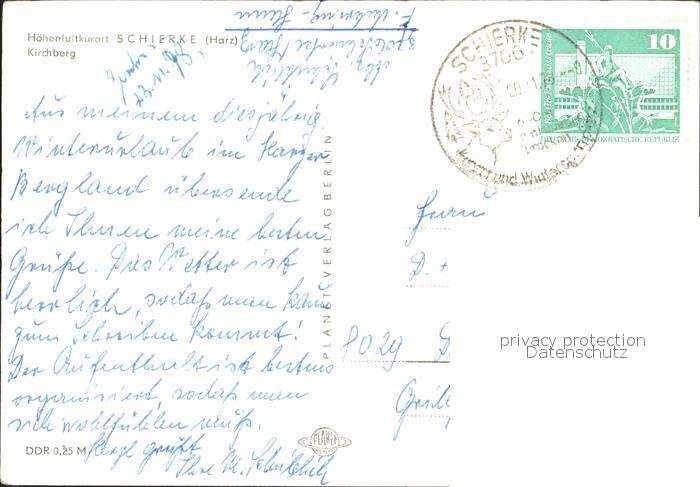 Höhenluftkurort SCHIERKE (Harz)
Kirchberg
Aus meinem diesjährig
Winterurlaub im Harzer
Bergland übersende
ich Ihnen meine besten
Grüße. Das Wetter ist
herrlich, sodaß man kaum
zum Schreiben kommt!
Der Aufenthalt ist bestens
organisiert, sodaß man
sich wohlfühlen muß.
Herzl. grüßt
Ihre M.
DDR 0,25 M
PLANET-VERLAG BERLIN
PLANET
SCHIERKE
3706
Kurort und Winterspo
10
DEUTSCHE DEMOKRATISCHE REPUBLIK
Frau
D. +
8029 D
privacy protection
Datenschutz